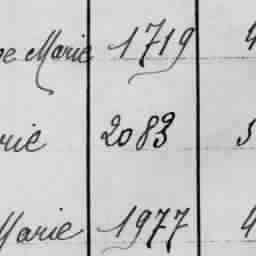 Marie 1719 4
2083
Marie 1977 4